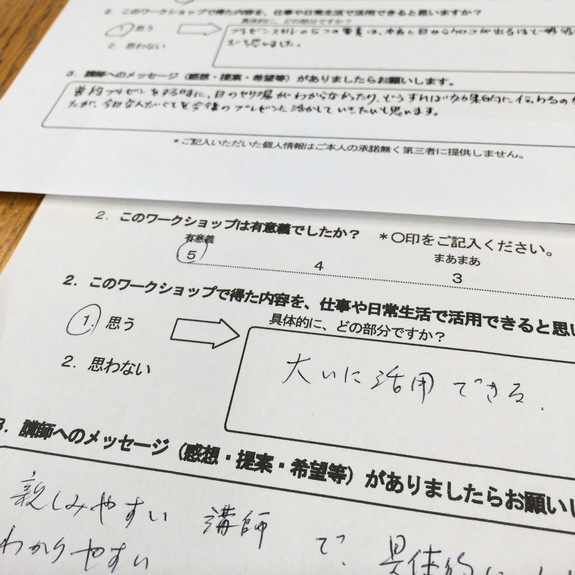 2. このワークショップで得た内容を、仕事や日常生活で活用できると思いますか?
具体的に、どの部分ですか?
1. 思う
2. 思わない
と思いました。
3. 講師へのメッセージ(感想・提案・希望等)がありましたらお願いします。
普段プレゼンをする時に、目のやり場がわからなかったり、どうすれば効果的に伝わるのか
たが、今回学んだことを今後のプレゼンに活かしていきたいと思います。
*ご記入いただいた個人情報はご本人の承諾無く第三者に提供しません。
2. このワークショップは有意義でしたか? *〇印をご記入ください。
有意義 まあまあ
5 4 3
2. このワークショップで得た内容を、仕事や日常生活で活用できると思い
具体的に、どの部分ですか?
1. 思う
大いに活用できる.
2. 思わない
3. 講師へのメッセージ(感想・提案・希望等)がありましたらお願いし
親しみやすい 講師 で、具体的に
わかりやすい